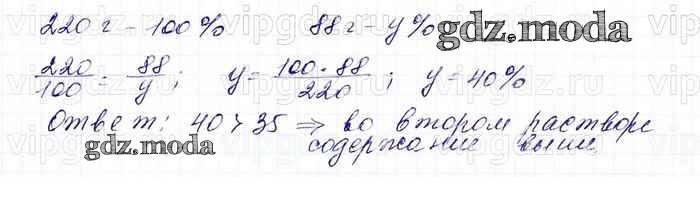 220 г – 100 %    88 г – у %
220/100 = 88/у ;  у = 100 · 88/220 ;  у = 40 %
Ответ: 40 > 35 ⇒ во втором растворе
содержание выше
gdz.moda
gdz.moda